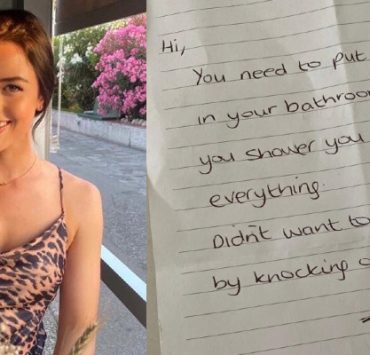 Hi,
You need to put
in your bathroo
you shower you
everything.
Didn't want to
by knocking o